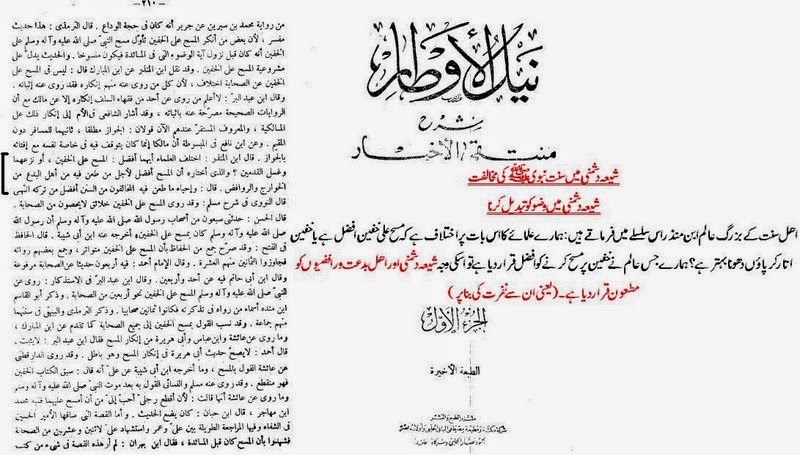 نيل الأوطار
شرح
منتقى الأخبار
شیعہ دشمنی میں سنت نبوی ﷺ کی مخالفت
شیعہ دشمنی میں وضو کو تبدیل کرنا
اہل سنت کے بزرگ عالم ابن منذر اس سلسلے میں فرماتے ہیں: ہمارے علمائے کا اس بات پر اختلاف ہے کہ مسح علی خفین افضل ہے یا خفین
اتار کر پاؤں دھونا بہتر ہے؟ ہمارے جس عالم نے خفین پر مسح کرنے کو افضل قرار دیا ہے تو اسکی وجہ شیعہ دشمنی اور اھل بدعت ورافضیوں کو
مطعون قرار دیا ہے۔ (یعنی ان سے نفرت کی بنا پر)
الجزء الأول
الطبعة الأخيرة
– ٢١٠ –
من رواية محمد بن سيرين عن جرير أنه كان في حجة الوداع . قال الترمذى : هذا حديث
مفسر ، لأن بعض من أنكر المسح على الخفين تأوّل مسح النبيّ صلى الله عليه وآله وسلم على
الخفين أنه كان قبل نزول آية الوضوء التي في المائدة فيكون منسوخا . والحديث يدلّ على
مشروعية المسح على الخفين . وقد نقل ابن المنذر عن ابن المبارك قال : ليس فى المسح على
الخفين عن الصحابة اختلاف ، لأن كل من روى عنه منهم إنكاره فقد روى عنه إثباته .
وقال ابن عبد البرّ : لا أعلم من روى عن أحد من فقهاء السلف إنكاره إلا عن مالك مع أن
الروايات الصحيحة مصرّحة عنه بإثباته . وقد أشار الشافعى في الأم إلى إنكار ذلك على
المالكية ، والمعروف المستقرّ عندهم الآن قولان : الجواز مطلقا ، ثانيهما للمسافر دون
المقيم . وعن ابن نافع في المبسوطة أن مالكا إنما كان يتوقف فيه في خاصة نفسه مع إفتائه
بالجواز . قال ابن المنذر : اختلف العلماء أيهما أفضل : المسح على الخفين ، أو نزعهما
وغسل القدمين ؟ والذى أختاره أن المسح أفضل لأجل من طعن فيه من أهل البدع من
الخوارج والروافض . قال : وإحياء ما طعن فيه المخالفون من السنن أفضل من تركه انتهى
قال النووى فى شرح مسلم : وقد روى المسح على الخفين خلائق لا يحصون من الصحابة .
قال الحسن : حدثنى سبعون من أصحاب رسول الله صلى الله عليه وآله وسلم أن رسول الله
صلى الله عليه وآله وسلم كان يمسح على الخفين، أخرجه عنه ابن أبي شيبة . قال الحافظ
فى الفتح : وقد صرّح جمع من الحفاظ بأن المسح على الخفين متواتر ، وجمع بعضهم رواته
فجاوزوا الثمانين منهم العشرة . وقال الإمام أحمد : فيه أربعون حديثا عن الصحابة مرفوعة
وقال ابن أبي حاتم فيه عن أحد وأربعين . وقال ابن عبد البرّ في الاستذكار : روى عن
النبيّ صلى الله عليه وآله وسلم المسح على الخفين نحو أربعين من الصحابة . وذكر أبو القاسم
ابن منده أسماء من رواه في تذكرته فكانوا ثمانين صحابيا . وذكر الترمذى والبيهقى فى سننهما
منهم جماعة . وقد نسب القول بمسح الخفين إلى جميع الصحابة كما تقدم عن ابن المبارك ،
وما روى عن عائشة وابن عباس وأبى هريرة من إنكار المسح فقال ابن عبد البرّ : لا يثبت .
قال أحمد : لا يصحّ حديث أبى هريرة في إنكار المسح وهو باطل . وقد روى الدارقطنى
عن عائشة القول بالمسح ، وما أخرجه ابن أبي شيبة عن عليّ أنه قال : سبق الكتاب الخفين
فهو منقطع . وقد روى عنه مسلم والنسائى القول به بعد موت النبىّ صلى الله عليه وآله وسلم
وما روى عن عائشة أنها قالت : لأن أقطع رجلىّ أحبّ إلىّ من أن أمسح عليهما ففيه محمد
ابن مهاجر ، قال ابن حبان : كان يضع الحديث . وأما القصة التي ساقها الأمير الحسين
فى الشفاء وفيها المراجعة الطويلة بين علىّ وعمر واستشهاد علىّ لاثنين وعشرين من الصحابة
فشهدوا بأن المسح كان قبل المائدة ، فقال ابن بهران : لم أر هذه القصة في شيء من كتب